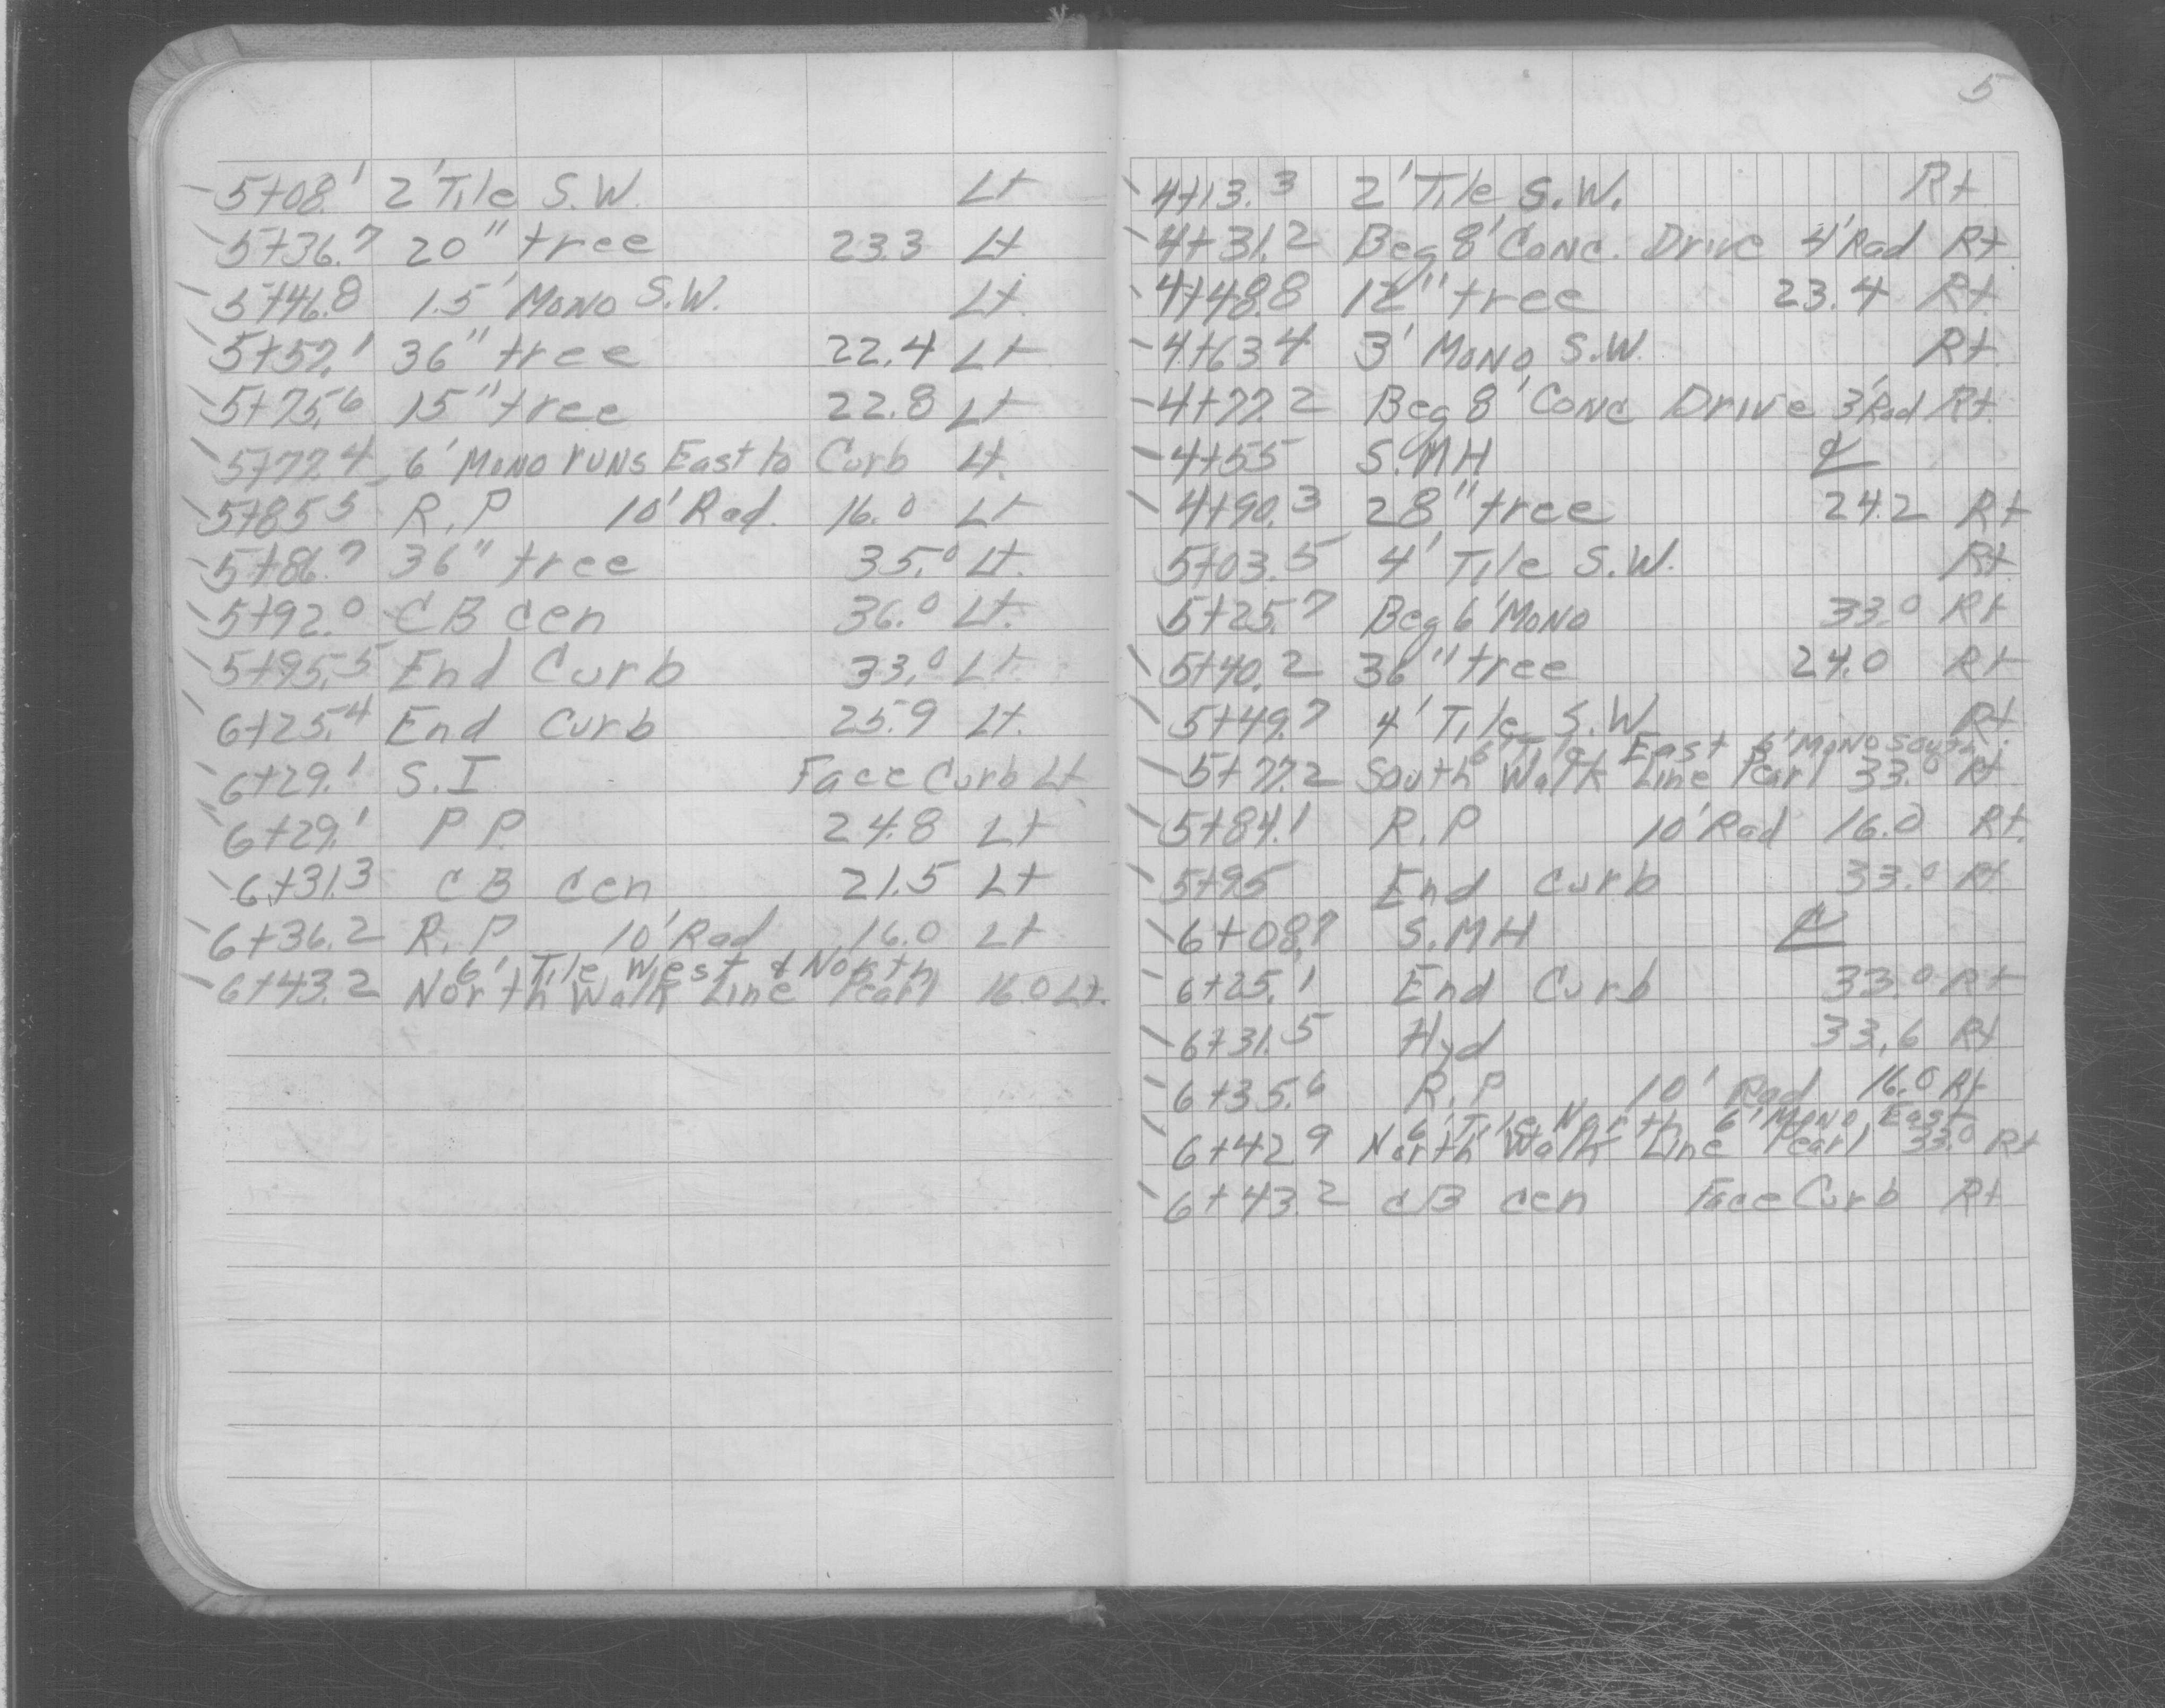 5+08.1 2' Tile S.W. Lt
5+36.7 20" tree 23.3 Lt
5+46.8 1.5' Mono S.W. Lt.
5+57.1 36" tree 22.4 Lt
5+75.6 15" tree 22.8 Lt
5+77.4 6' Mono runs East to Curb Lt.
5+85.5 R.P 10' Rad. 16.0 Lt
5+86.7 36" tree 35.0 Lt.
5+92.0 CB cen 36.0 Lt.
5+95.5 End Curb 33.0 Lt.
6+25.4 End Curb 25.9 Lt.
6+29.1 S.I Face Curb Lt.
6+29.1 P.P. 24.8 Lt
6+31.3 CB cen 21.5 Lt
6+36.2 R.P 10' Rad 16.0 Lt
6' Tile West & North
6+43.2 North Walk Line Pearl 16.0 Lt.
5
4+13.3 2' Tile S.W. Rt
4+31.2 Beg 8' Conc. Drive 4' Rad Rt.
4+48.8 12" tree 23.4 Rt.
4+63.4 3' Mono S.W. Rt.
4+77.2 Beg 8' Conc Drive 3' Rad Rt.
4+55 S.MH ℄
4+90.3 28" tree 24.2 Rt
5+03.5 4' Tile S.W. Rt.
5+25.7 Beg 6' Mono 33.0 Rt
5+40.2 36" tree 24.0 Rt
5+49.7 4' Tile S.W. Rt.
6' Tile East 6' Mono South
5+77.2 South Walk Line Pearl 33.0 Rt.
5+84.1 R.P 10' Rad 16.0 Rt.
5+95 End Curb 33.0 Rt
6+08.7 S.MH ℄
6+25.1 End Curb 33.0 Rt
6+31.5 Hyd 33.6 Rt
6+35.6 R.P 10' Rad 16.0 Rt
6' Tile North 6' Mono East
6+42.9 North Walk Line Pearl 33.0 Rt
6+43.2 CB cen Face Curb Rt